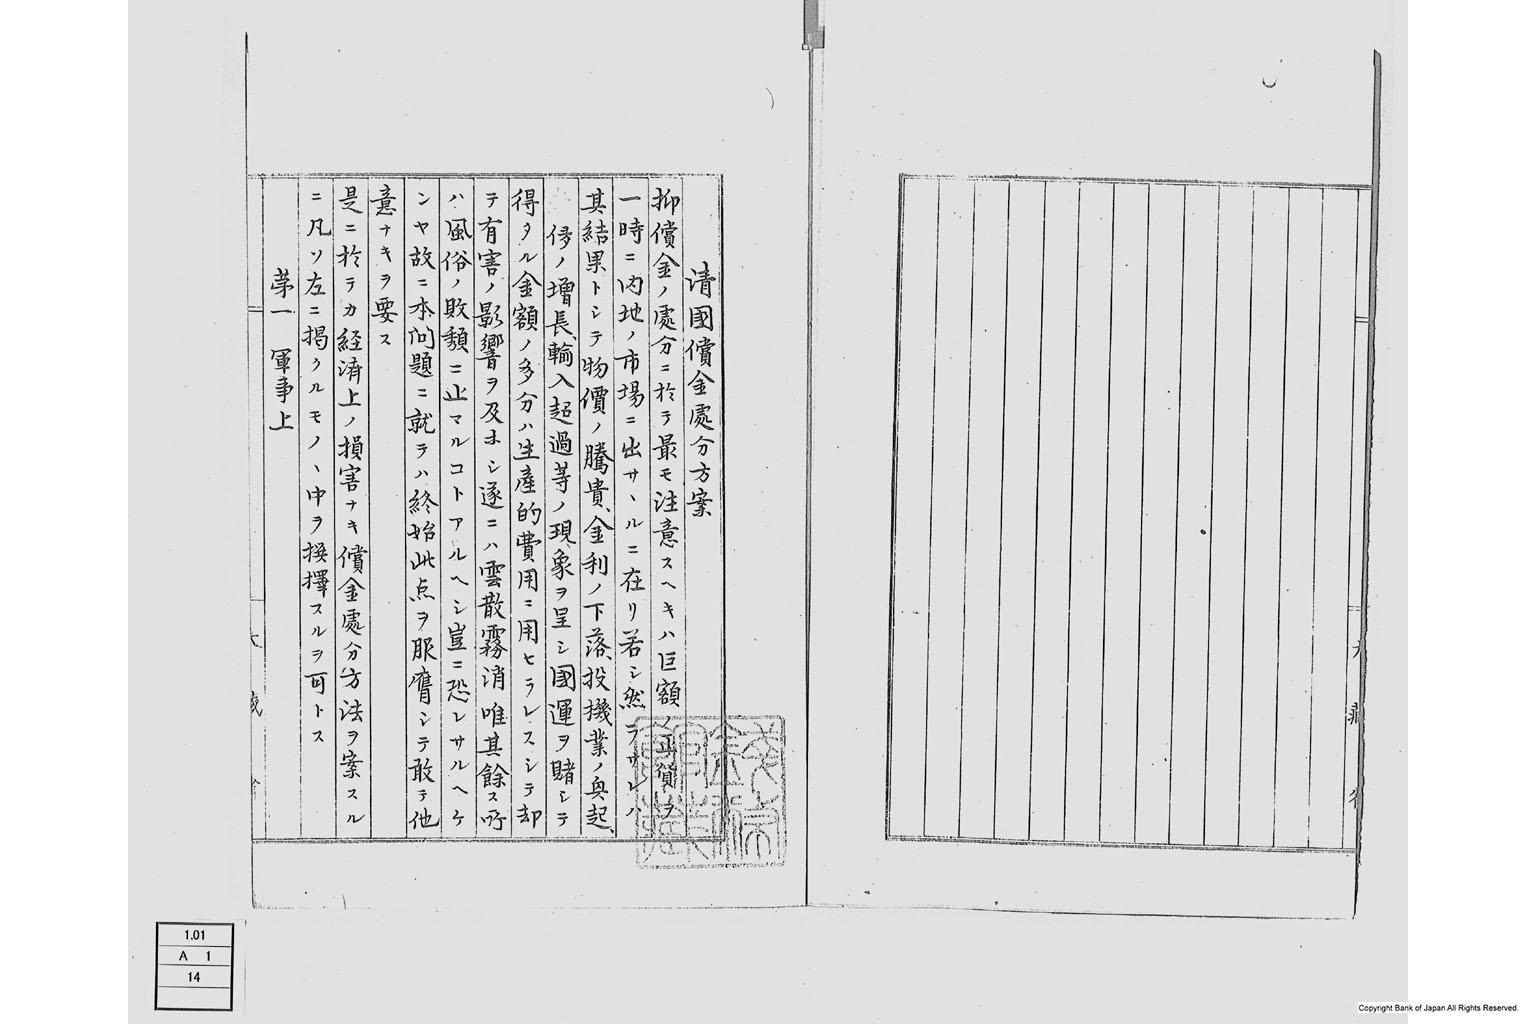 清國償金處分方案
抑償金ノ處分ニ於テ最モ注意スヘキハ巨額ノ正貨ヲ
一時ニ内地ノ市場ニ出サヽルニ在リ若シ然ラサレハ
其結果トシテ物價ノ騰貴、金利ノ下落、投機業ノ興起、
侈ノ増長、輸入超過等ノ現象ヲ呈シ國運ヲ賭シテ
得タル金額ノ多分ハ生産的費用ニ用ヒラレスシテ却
テ有害ノ影響ヲ及ホシ遂ニハ雲散霧消唯其餘ス所
ハ風俗ノ敗頽ニ止マルコトアルヘシ豈ニ恐レサルヘケ
ンヤ故ニ本問題ニ就テハ終始此点ヲ服膺シテ敢テ他
意ナキヲ要ス
是ニ於テカ経済上ノ損害ナキ償金處分方法ヲ案スル
ニ凡ソ左ニ掲クルモノヽ中ヲ撰擇スルヲ可トス
第一 軍事上
大藏省
1.01
A 1
14
Copyright Bank of Japan All Rights Reserved.